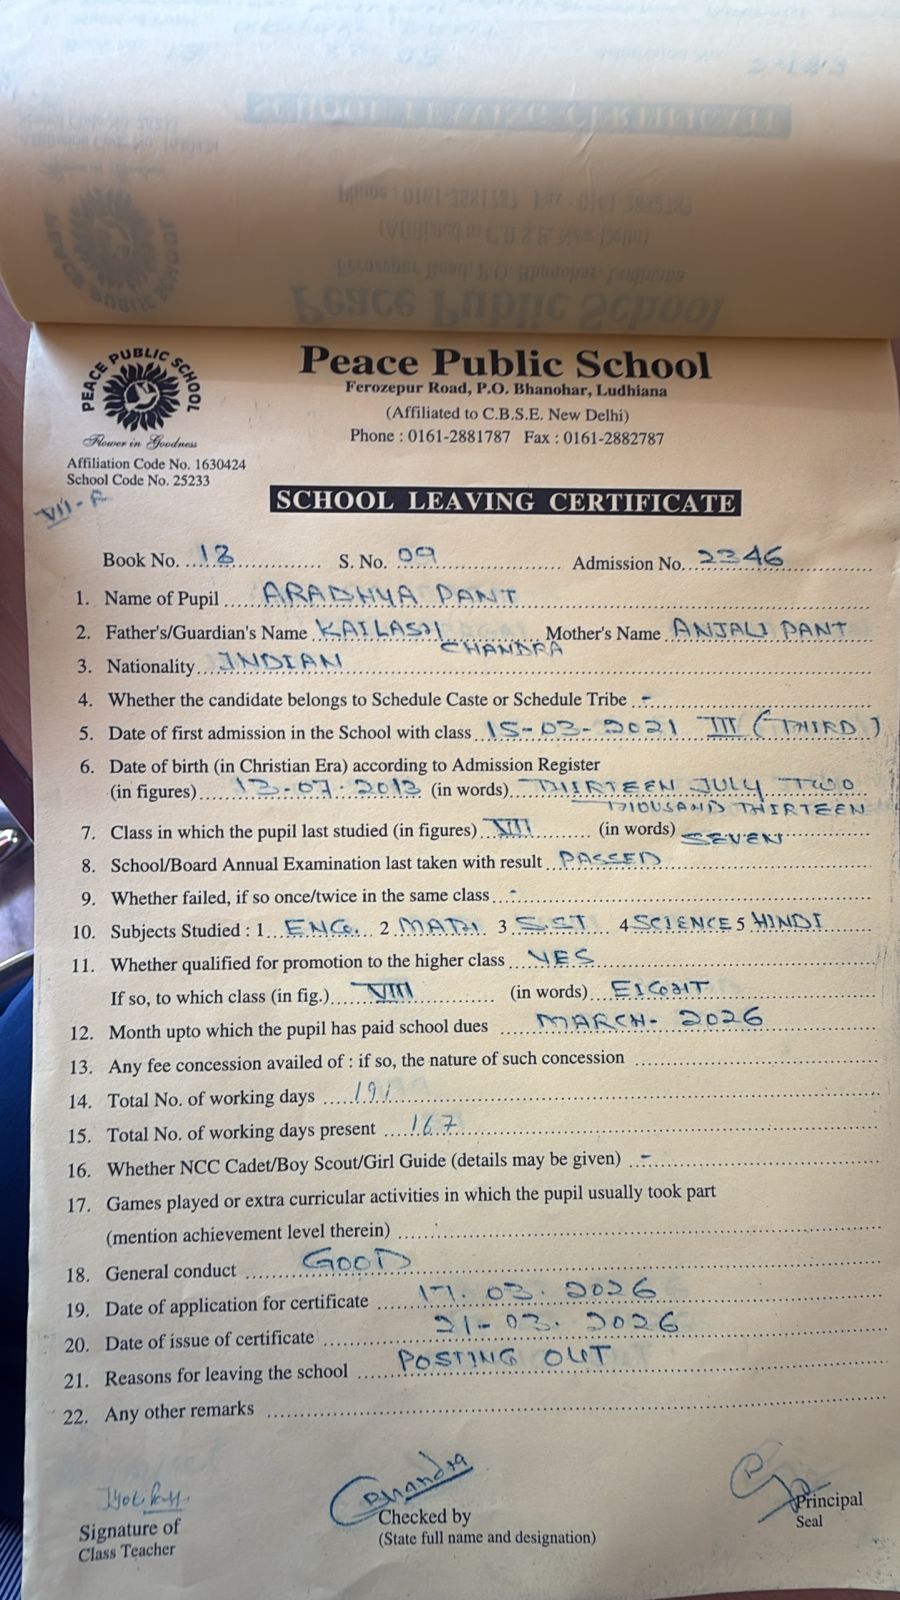 PEACE PUBLIC SCHOOL
Flower in Goodness
Peace Public School
Ferozepur Road, P.O. Bhanohar, Ludhiana
(Affiliated to C.B.S.E. New Delhi)
Phone : 0161-2881787 Fax : 0161-2882787
Affiliation Code No. 1630424
School Code No. 25233
SCHOOL LEAVING CERTIFICATE
Book No. 18 S. No. 09 Admission No. 2346
1. Name of Pupil ARADHYA PANT
2. Father's/Guardian's Name KAILASH CHANDRA Mother's Name ANJALI PANT
3. Nationality INDIAN
4. Whether the candidate belongs to Schedule Caste or Schedule Tribe -
5. Date of first admission in the School with class 15-03-2021 III (THIRD)
6. Date of birth (in Christian Era) according to Admission Register
(in figures) 13-07-2013 (in words) THIRTEEN JULY TWO
THOUSAND THIRTEEN
7. Class in which the pupil last studied (in figures) VII (in words) SEVEN
8. School/Board Annual Examination last taken with result PASSED
9. Whether failed, if so once/twice in the same class -
10. Subjects Studied : 1 ENG. 2 MATH 3 S.ST 4 SCIENCE 5 HINDI
11. Whether qualified for promotion to the higher class YES
If so, to which class (in fig.) VIII (in words) EIGHT
12. Month upto which the pupil has paid school dues MARCH- 2026
13. Any fee concession availed of : if so, the nature of such concession
14. Total No. of working days 191
15. Total No. of working days present 167
16. Whether NCC Cadet/Boy Scout/Girl Guide (details may be given) -
17. Games played or extra curricular activities in which the pupil usually took part
(mention achievement level therein)
18. General conduct GOOD
19. Date of application for certificate 17.03.2026
20. Date of issue of certificate 21-03.2026
21. Reasons for leaving the school POSTING OUT
22. Any other remarks
Signature of
Class Teacher
Checked by
(State full name and designation)
Principal
Seal